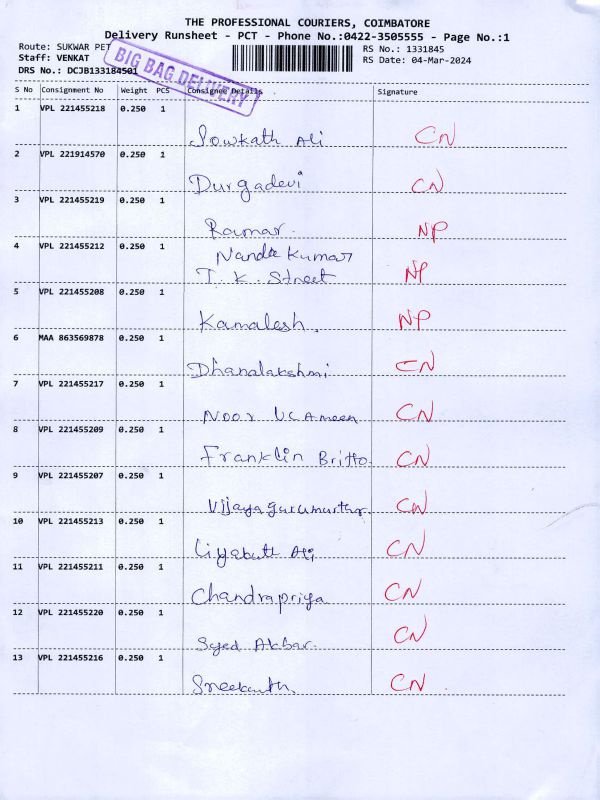 THE PROFESSIONAL COURIERS, COIMBATORE
Delivery Runsheet - PCT - Phone No.:0422-3505555 - Page No.:1
Route: SUKWAR PET
Staff: VENKAT
DRS No.: DCJB133184501
RS No.: 1331845
RS Date: 04-Mar-2024
BIG BAG DELIVERY
S No Consignment No Weight PCS Consignee Details Signature
1 VPL 221455218 0.250 1
Sowkath Ali CN
2 VPL 221914570 0.250 1
Durgadevi CN
3 VPL 221455219 0.250 1
Ramar. NP
4 VPL 221455212 0.250 1
Nanda Kumar
T. K. Street NP
5 VPL 221455208 0.250 1
Kamalesh. NP
6 MAA 863569878 0.250 1
Dhanalakshmi CN
7 VPL 221455217 0.250 1
Noor Ul Ameen CN
8 VPL 221455209 0.250 1
Franklin Britto. CN
9 VPL 221455207 0.250 1
Vijayagurumurthy CN
10 VPL 221455213 0.250 1
Liyakath Ali CN
11 VPL 221455211 0.250 1
Chandrapriya CN
12 VPL 221455220 0.250 1
Syed Akbar. CN
13 VPL 221455216 0.250 1
Sreekanth. CN